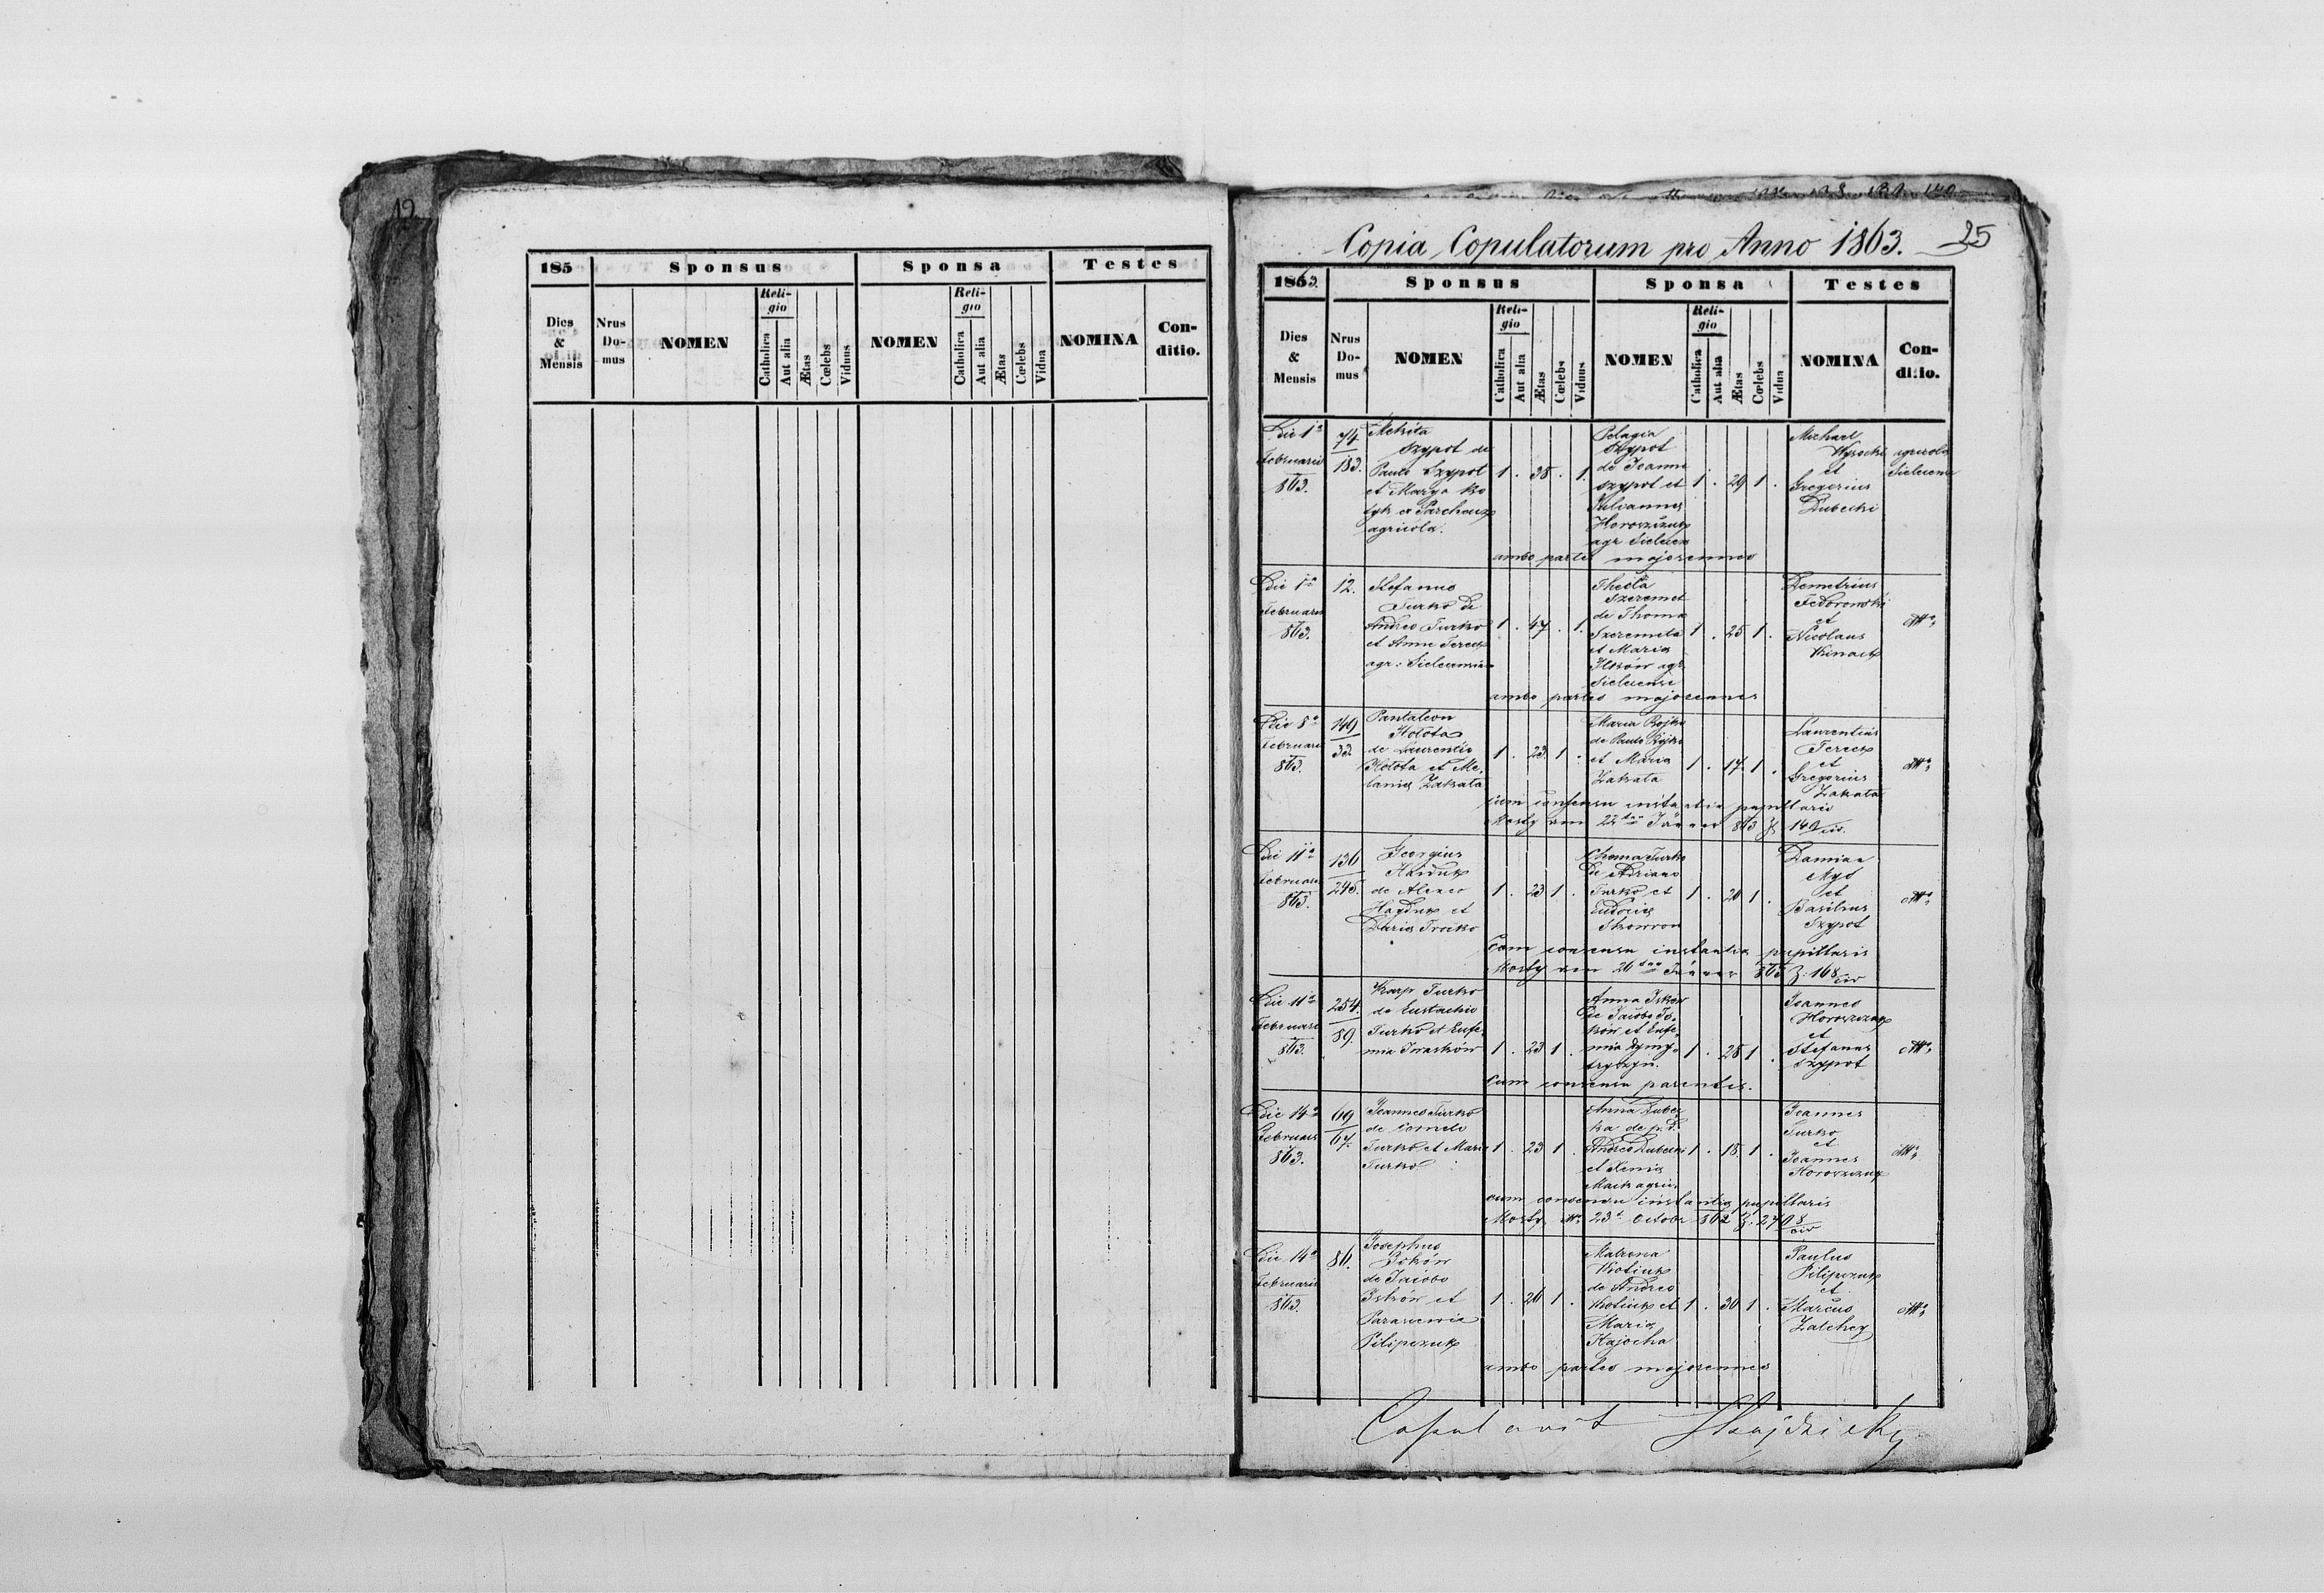 12
185
Sponsus
Sponsa
Testes
Dies
&
Mensis
Nrus
Do-
mus
NOMEN
Reli-
gio
Catholica
Aut alia
Ætas
Cœlebs
Viduus
NOMEN
Reli-
gio
Catholica
Aut alia
Ætas
Cœlebs
Vidua
NOMINA
Con-
ditio.
Copia Copulatorum pro Anno 1863.
25
1863.
Sponsus
Sponsa
Testes
Dies
&
Mensis
Nrus
Do-
mus
NOMEN
Reli-
gio
Catholica
Aut alia
Ætas
Cœlebs
Viduus
NOMEN
Reli-
gio
Catholica
Aut alia
Ætas
Cœlebs
Vidua
NOMINA
Con-
ditio.
Die 1a
Februarii
863.
74
183.
Mekita
Szypot de
Paulo Szypot
et Marya
agricola.
1 . 38 . 1.
Pelagia
Szypot
de Joanne
Szypot et
Julianna
Horoszczuk
agr Sielecen
1 . 29 1 .
Michael
Wysocki
et
Gregorius
Dubecki
agricola
Sielecens
ambo partes majorennes
Die 1a
Februarii
863.
12.
Stefanus
Turko de
Andreo Turko
et Anna Terech
agr: Sielecensis
1 . 47 . 1.
Thecla
Szeremet
de Thoma
Szeremeta
et Maria
Iskow agr
Sielecense
1 . 25 1 .
Demetrius
Fedorowski
et
Nicolaus
ambo partes majorennes
Die 8a
Februarii
863.
149
33
Pantaleon
Hołota
de Laurentio
Hołota et Me-
lania Zakała
1 . 23 1 .
Maria Bojko
de Paulo Bojko
et Maria
Zakała
1 . 17 1 .
Laurentius
Terech
et
Gregorius
Zakała
cum consensu instantia pupillaris
Mosty vom 22ten Jänner 863 Z 149/civ.
Die 11a
Februarii
863.
136
245.
Georgius
Hajduk
de Alexeo
Hayduk et
Daria Troćko
1 . 23 1 .
Turko
de Adriano
Turko et
Eudocia
1 . 20 1 .
Damian
et
Basilius
Szypot
Cum consensu instantia pupillaris
Mosty vom 26ten Jänner 863 Z. 168/civ
Die 11a
Februarii
863.
254.
89.
Karp Turko
de Eustachio
Turko et Eufe-
mia Iwasków
1 . 23 1 .
Anna Iskow
de Jacobo Is-
ków et Eufe-
mia Dymy-
tryszyn.
1 . 28 1 .
Joannes
Horoszczuk
et
Stefanus
Szypot
Cum consensu parentis.
Die 14a
Februarii
863.
69
67.
Joannes Turko
de
Turko et Maria
Turko
1 . 23 1 .
Anna Dubec
ka de p. d.
Andreo Dubecki
et Xenia
1 . 18. 1 .
Joannes
Turko
et
Joannes
Horoszczuk
cum consensu instantia pupillaris
Mosty 23t Octobr 862 Z. 2708/civ
Die 14a
Februarii
863.
86.
Josephus
Iskow
de Jacobo
Iskow et
Parascewia
Pilipczuk
1 . 26 1 .
Matrona
Kotiuk
de Andreo
Kotiuk et
Maria
Hajocha
1 . 30 1 .
Paulus
Pilipczuk
et
Marcus
ambo partes majorennes
Copulavit